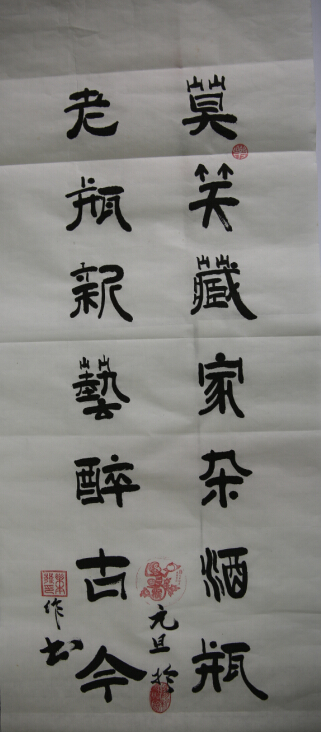 莫笑藏家杂酒瓶
老瓶新藝醉古今
元旦於
作书